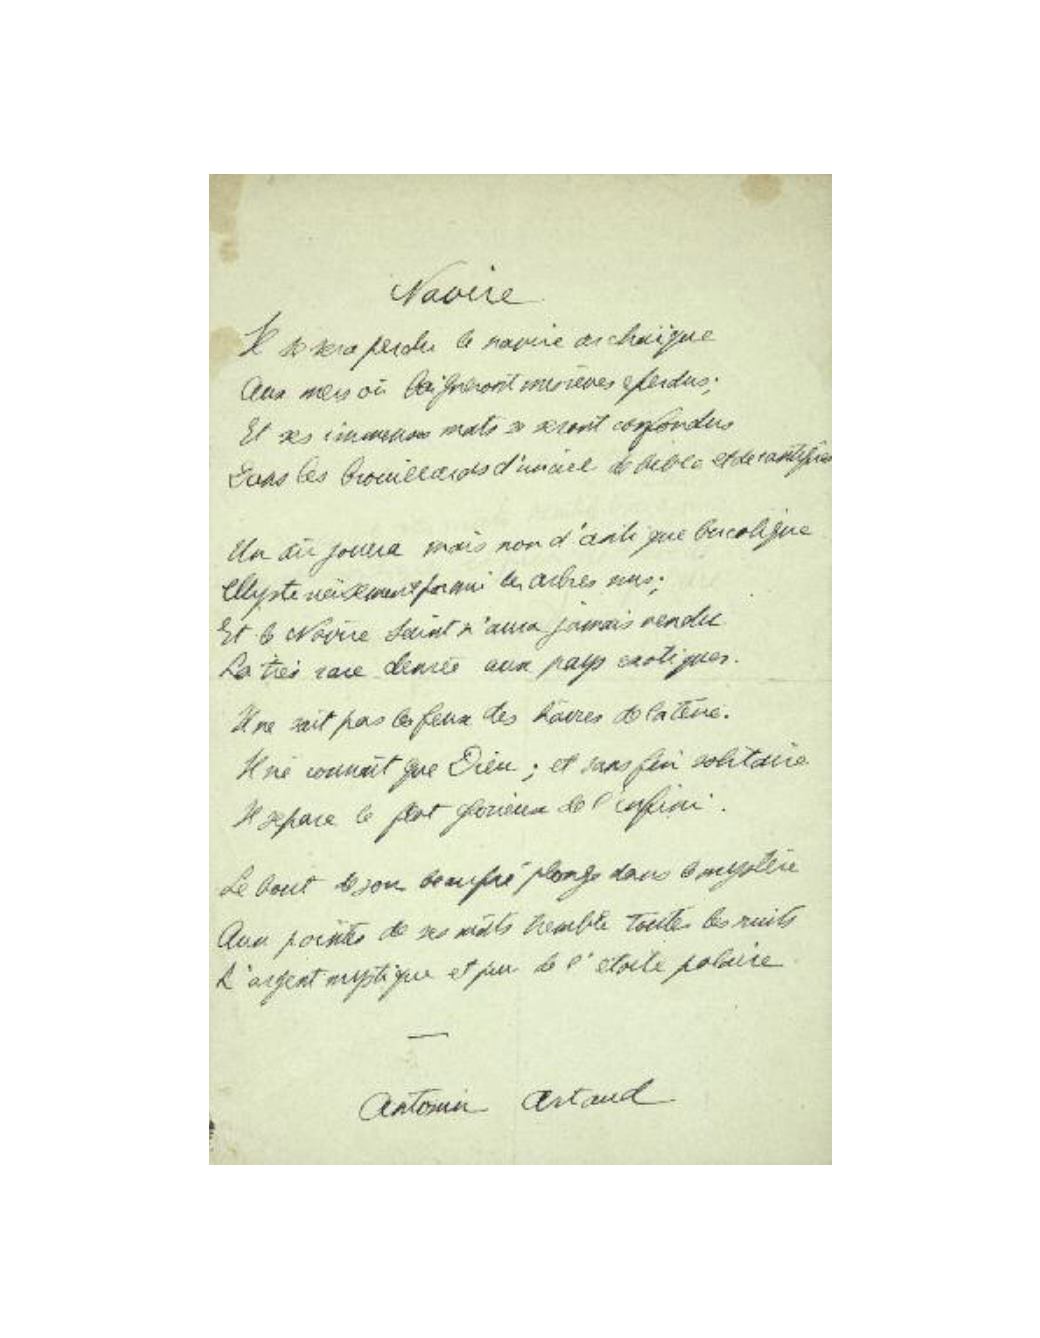 Navire
Il se sera perdu le navire archaïque
Aux mers où baigneront mes rêves éperdus;
Et ses immenses mats se seront confondus
Dans les brouillards d'un ciel de bible et de cantiques
Un air jouera mais non d'antique bucolique
Mystérieusement parmi les arbres nus;
Et le Navire Saint n'aura jamais vendu
La très rare denrée aux pays exotiques.
Il ne sait pas les feux des hâvres de la terre.
Il ne connait que Dieu; et sans fin solitaire
Il sépare le flot glorieux de l'infini.
Le bout de son beaupré plonge dans le mystère
Aux pointes de ses mâts tremble toutes les nuits
L'argent mystique et pur de l'étoile polaire
Antonin Artaud